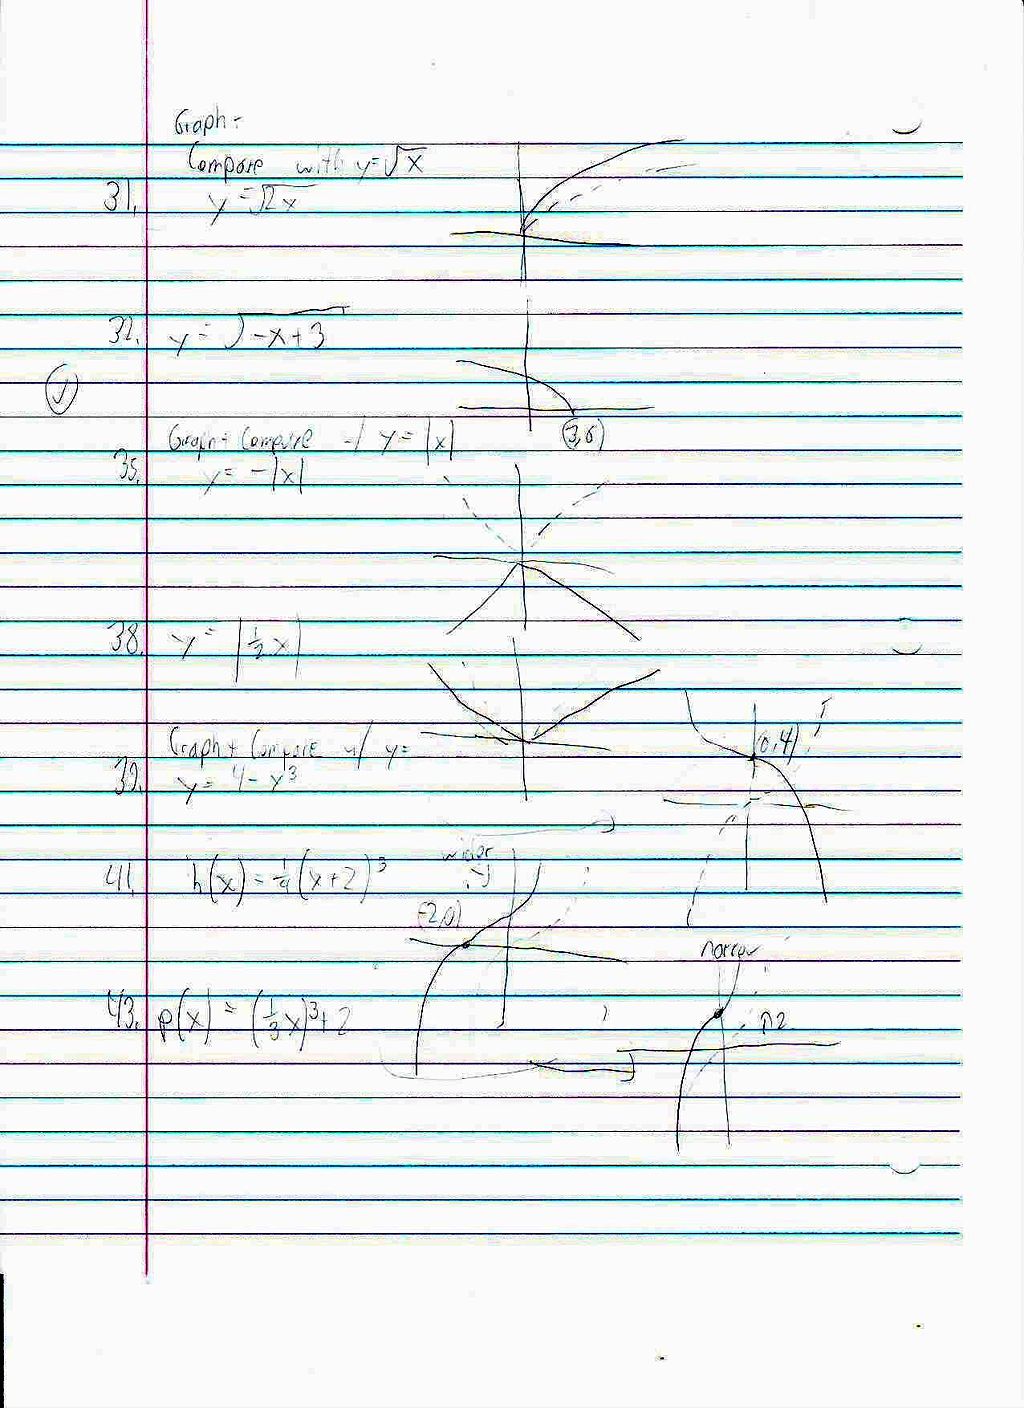 Graph +
Compare with y=√x
31. y=√2x
32. y = √-x+3
(3,0)
Graph + Compare w/ y = |x|
35. y = -|x|
38. y = |1/2 x|
Graph + Compare w/ y=
39. y = 4 - x³
(0,4)
41. h(x) = 1/4 (x+2)³
wider
(-2,0)
43. p(x) = (1/3 x)³+2
narrow